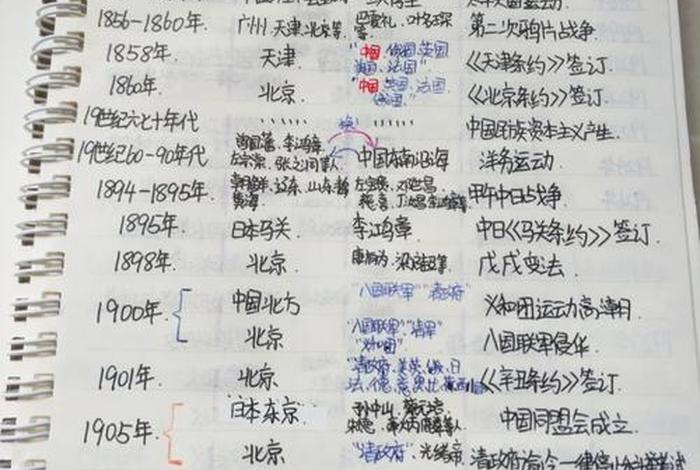 1856-1860年. 广州、天津、北京等. 巴夏礼、叶名琛等. 第二次鸦片战争.
1858年. 天津. "中国、俄国、英国 美国、法国" 《天津条约》签订.
1860年. 北京. "中国、英国、法国 俄国" 《北京条约》签订.
19世纪六七十年代 ...... ...... 中国民族资本主义产生.
19世纪60-90年代 曾国藩、李鸿章、左宗棠、张之洞等人 换 中国东南沿海 洋务运动.
1894-1895年. 左宝贵、邓世昌 甲午中日战争.
1895年. 日本马关. 李鸿章. 中日《马关条约》签订.
1898年. 北京. 康有为、梁启超等. 戊戌变法.
1900年. 中国北方 "八国联军""清政府" 义和团运动高潮期
北京. "八国联军""清军" "义和团" 八国联军侵华.
1901年. 北京. "清政府、美、英、俄、日 法、德、意、奥、比 《辛丑条约》签订.
1905年. "日本东京" 孙中山、 中国同盟会成立.
北京. "清政府"、光绪帝.